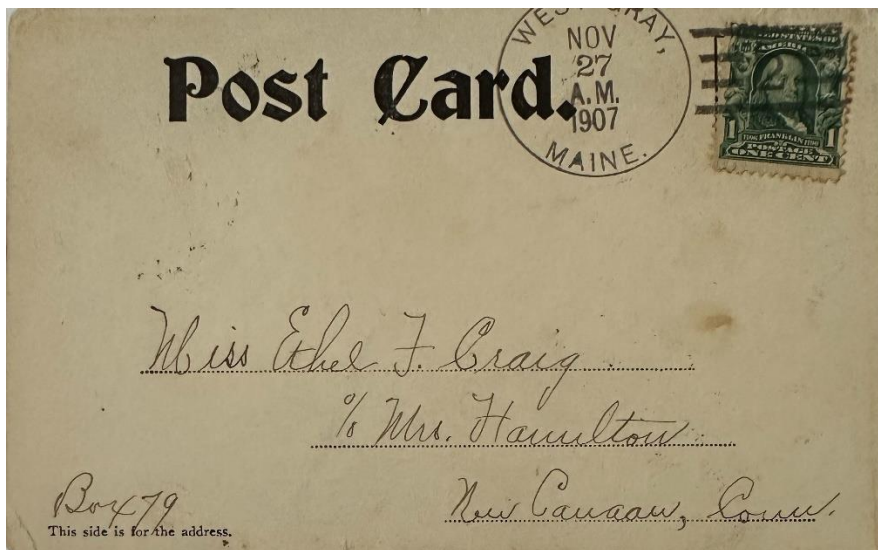 Post Card.
WEST GRAY,
NOV
27
A.M.
1907
MAINE.
2
UNITED STATES OF
AMERICA
1 1706 FRANKLIN 1790 1
POSTAGE
ONE CENT
Miss Ethel F. Craig
% Mrs. Hamilton
New Canaan, Conn.
Box 79
This side is for the address.